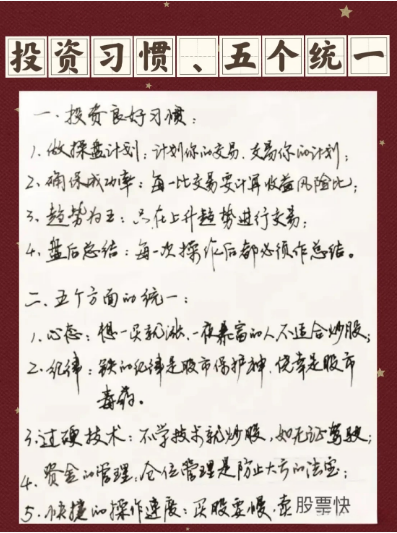 投资习惯、五个统一
一、投资良好习惯：
1.做操盘计划：计划你的交易、交易你的计划；
2.确保成功率：每一比交易要计算收益风险比；
3.趋势为王：只在上升趋势进行交易；
4.盘后总结：每一次操作后都必须作总结。
二、五个方面的统一：
1.心态：想一买就涨、一夜暴富的人不适合炒股；
2.纪律：铁的纪律是股市保护神，侥幸是股市
毒药。
3.过硬技术：不学技术就炒股，如无证驾驶；
4.资金的管理：仓位管理是防止大亏的法宝；
5.快捷的操作速度：买股要慢，卖股票快